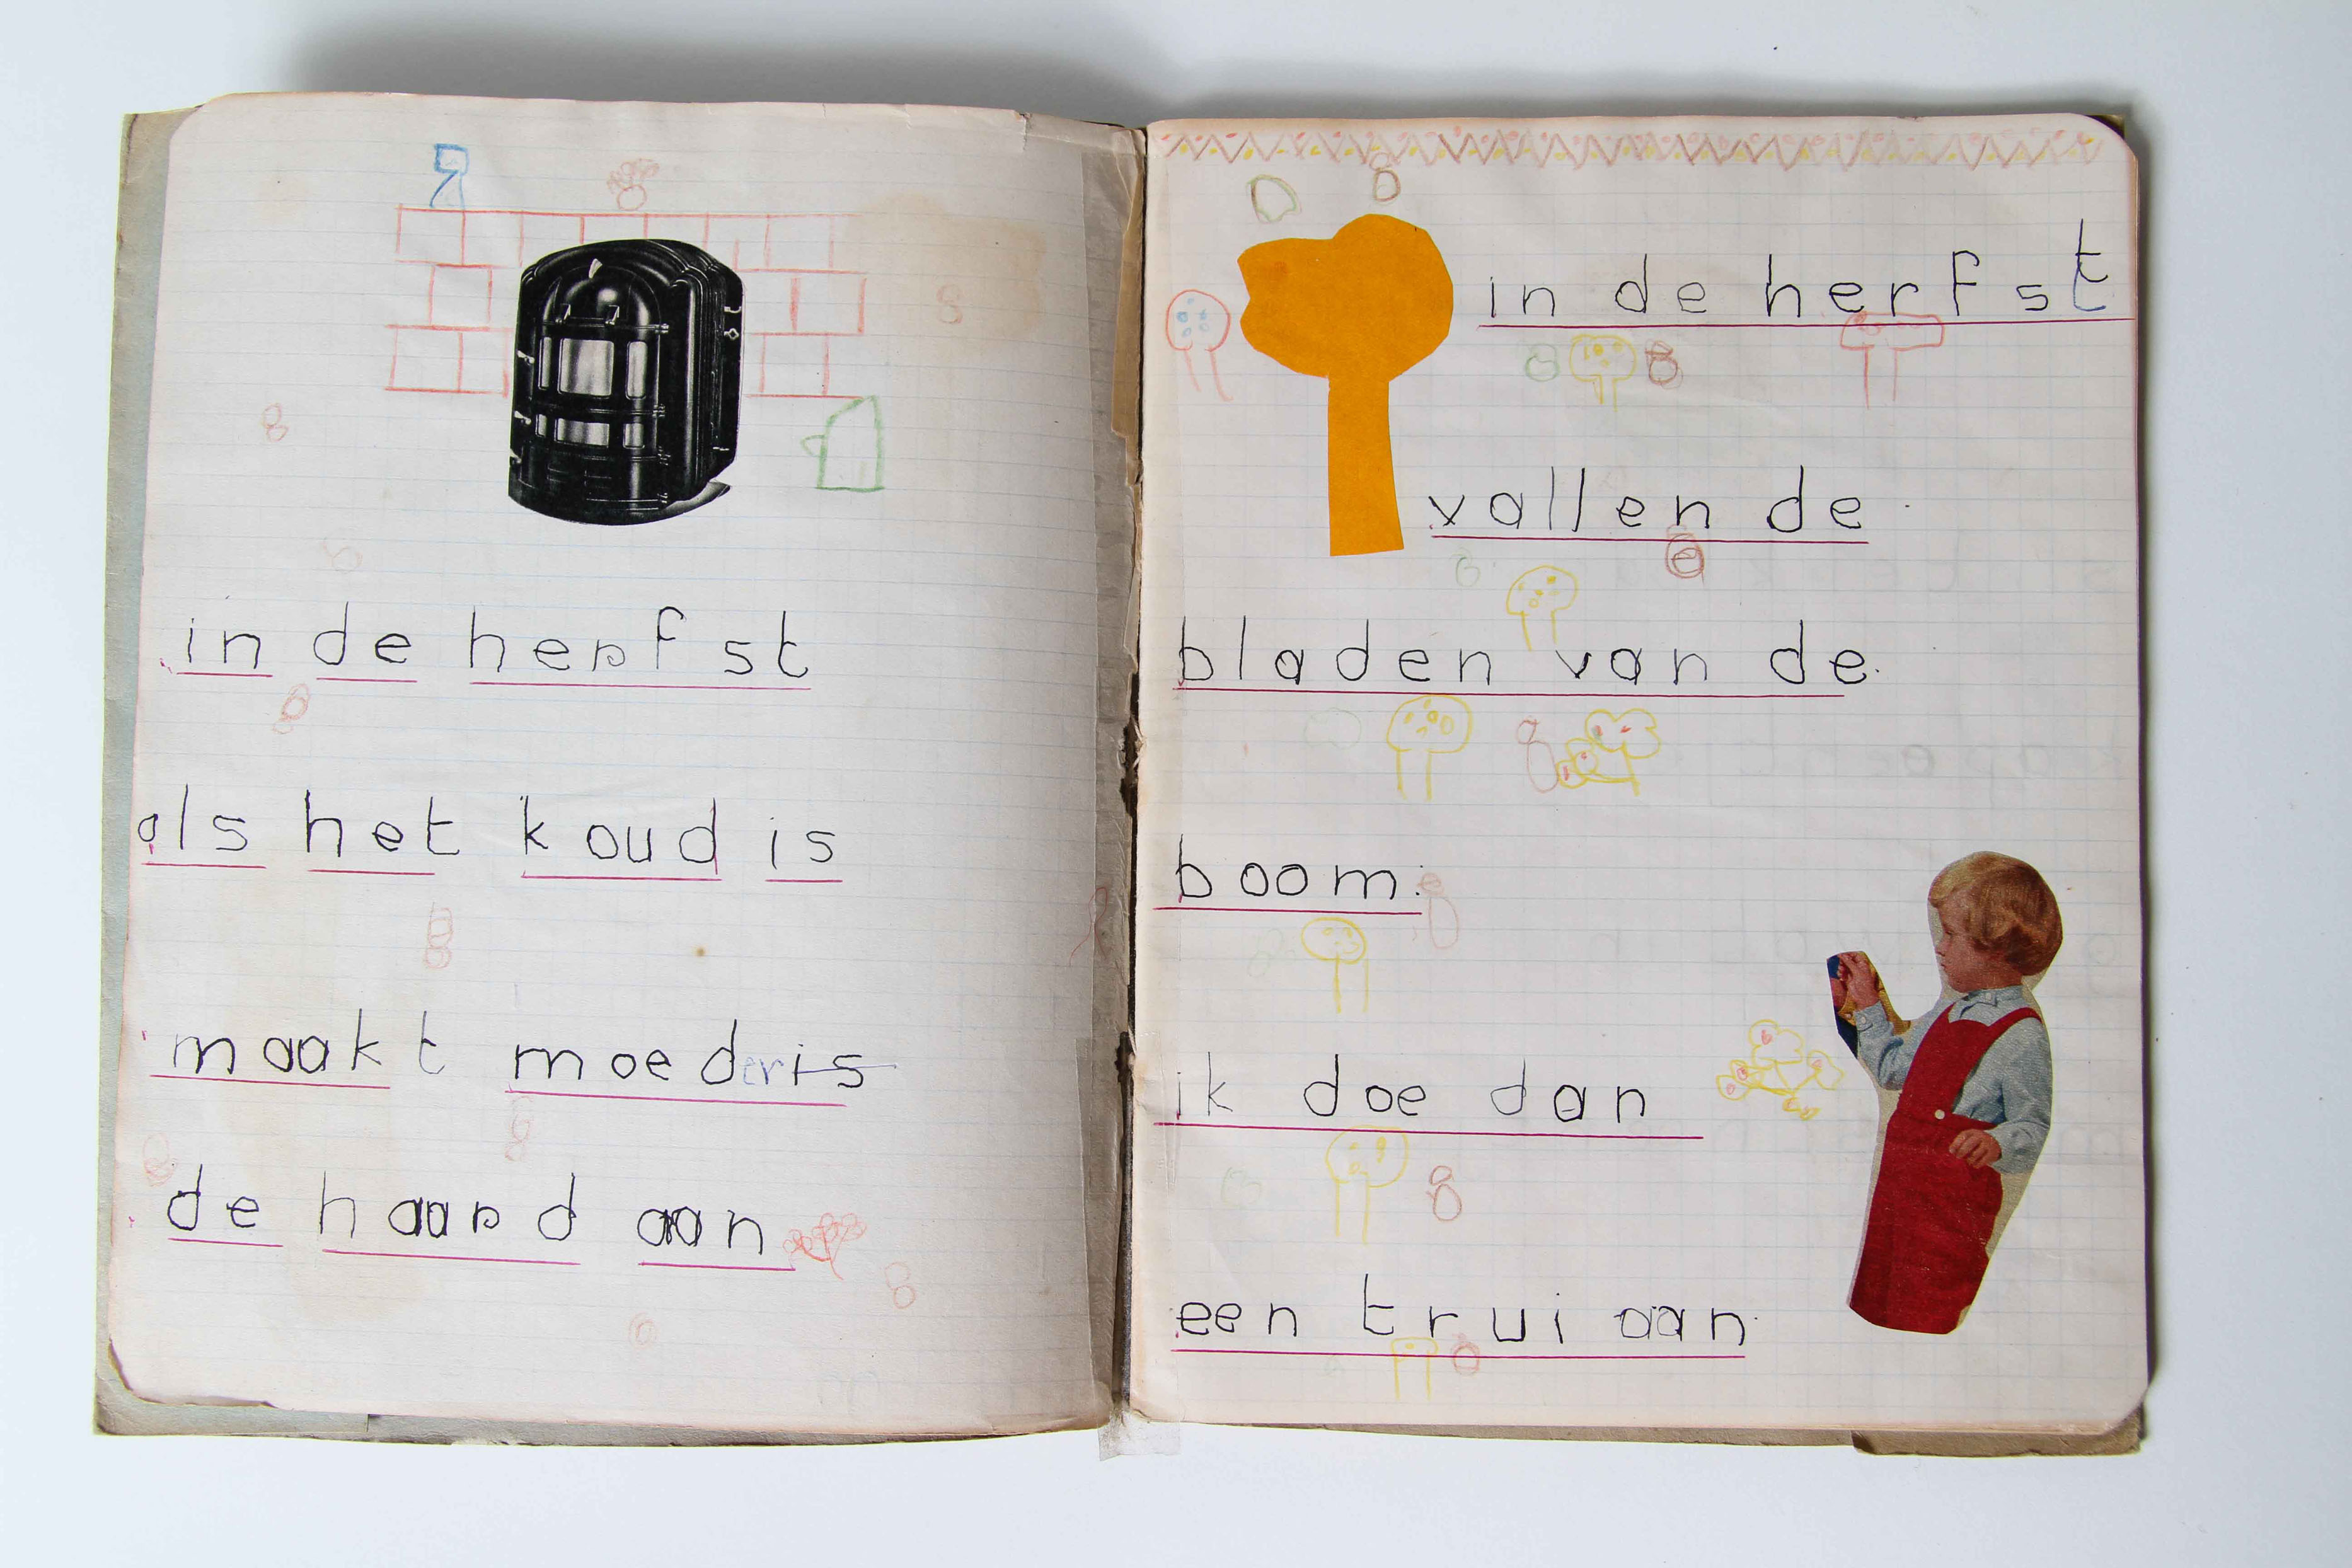 in de herfst
als het koud is
maakt moeder is
de haard aan
in de herfst
vallen de
bladen van de
boom.
ik doe dan
een trui aan